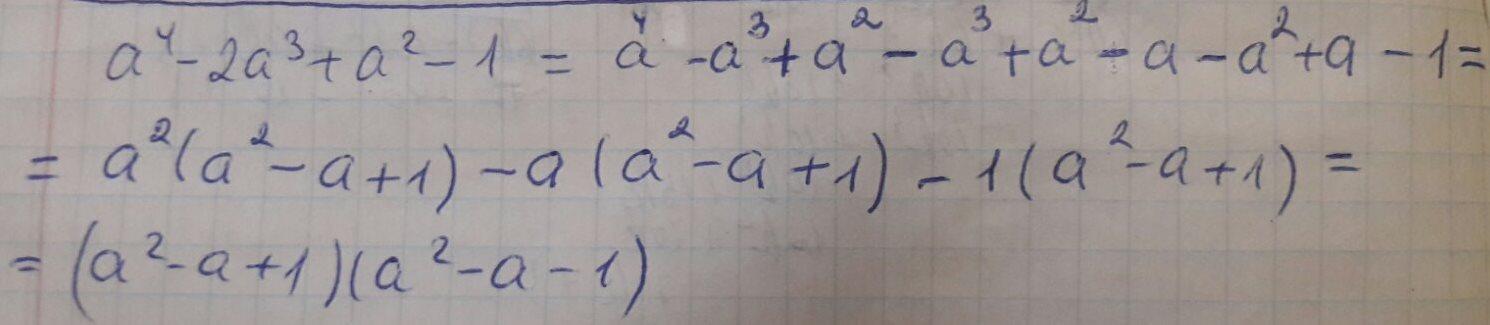 a⁴-2a³+a²-1 = a⁴-a³+a²-a³+a²-a-a²+a-1=
= a²(a²-a+1)-a(a²-a+1)-1(a²-a+1)=
= (a²-a+1)(a²-a-1)